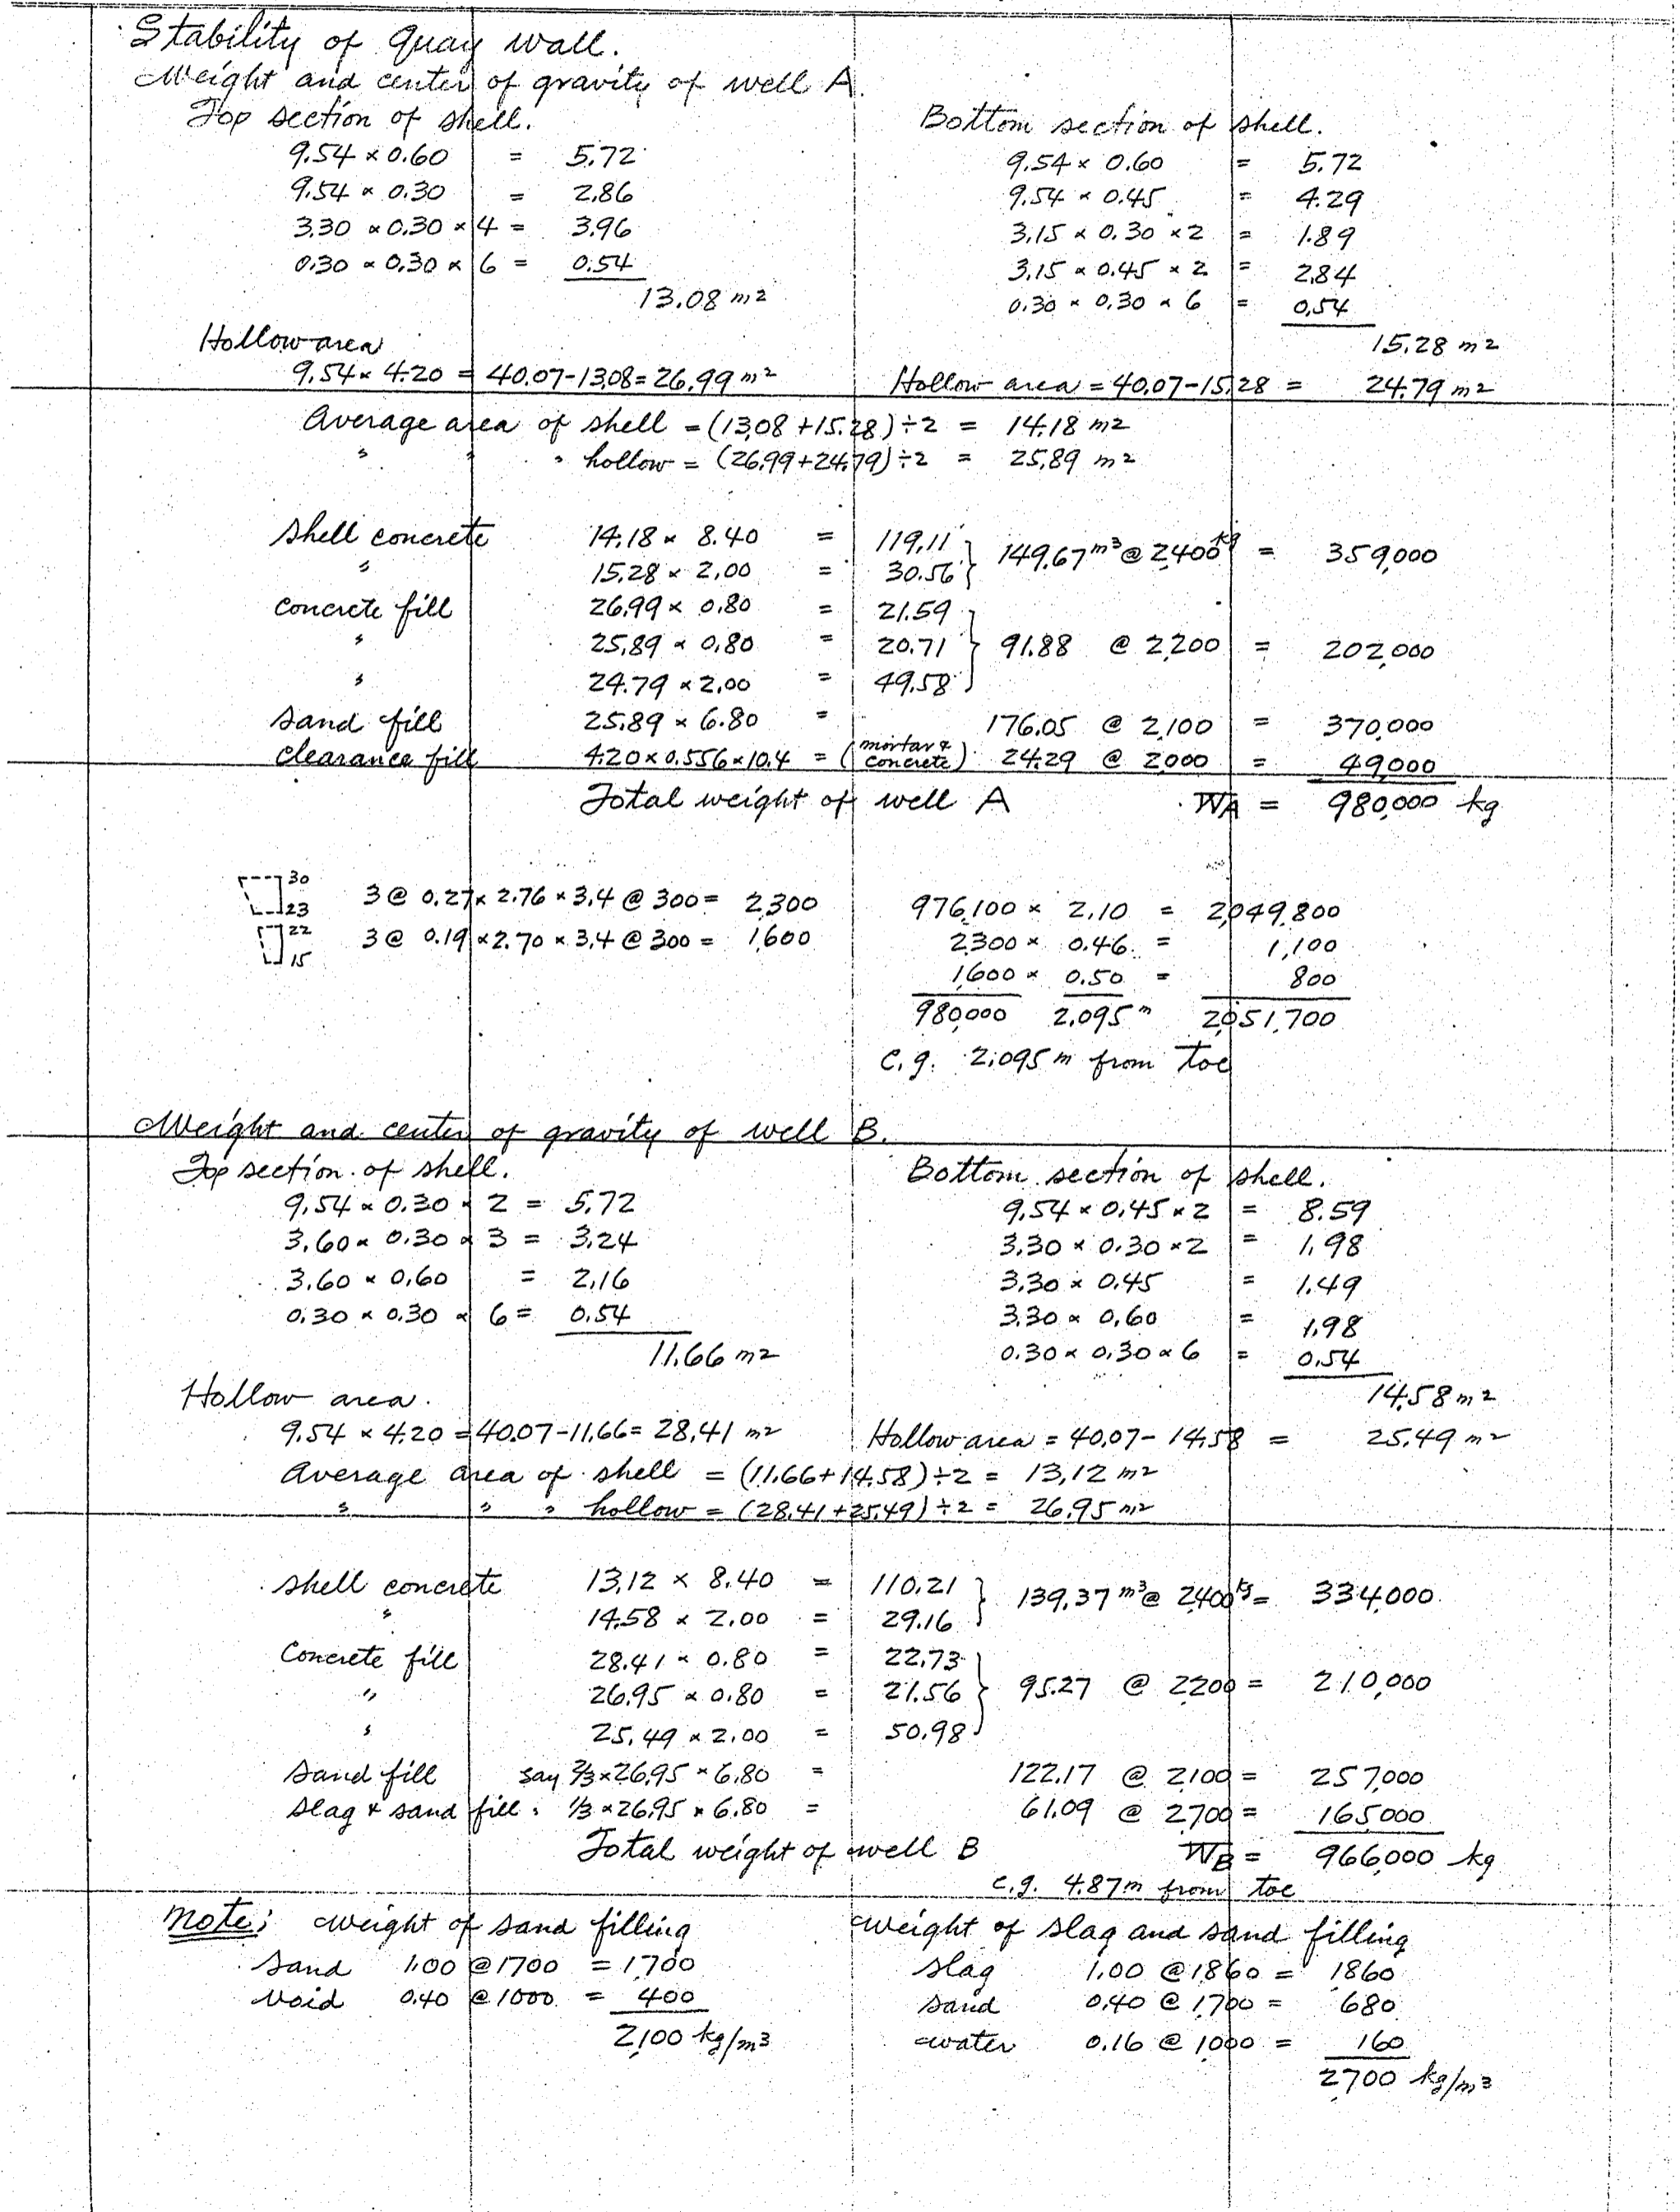 Stability of Quay wall.
Weight and center of gravity of well A.
Top section of shell.
9.54 × 0.60 = 5.72
9.54 × 0.30 = 2.86
3.30 × 0.30 × 4 = 3.96
0.30 × 0.30 × 6 = 0.54
13.08 m2
Hollow area
9.54 × 4.20 = 40.07-13.08 = 26.99 m2
Bottom section of shell.
9.54 × 0.60 = 5.72
9.54 × 0.45 = 4.29
3.15 × 0.30 × 2 = 1.89
3.15 × 0.45 × 2 = 2.84
0.30 × 0.30 × 6 = 0.54
15.28 m2
Hollow area = 40.07-15.28 = 24.79 m2
Average area of shell = (13.08 + 15.28) ÷ 2 = 14.18 m2
" " " hollow = (26.99+24.79) ÷ 2 = 25.89 m2
Shell concrete 14.18 × 8.40 = 119.11 } 149.67 m3 @ 2,400 kg = 359,000
" 15.28 × 2.00 = 30.56
Concrete fill 26.99 × 0.80 = 21.59
" 25.89 × 0.80 = 20.71 } 91.88 @ 2,200 = 202,000
" 24.79 × 2.00 = 49.58
Sand fill 25.89 × 6.80 = 176.05 @ 2,100 = 370,000
Clearance fill 4.20 × 0.556 × 10.4 = (mortar & concrete) 24.29 @ 2,000 = 49,000
Total weight of well A WA = 980,000 kg
30
23
3 @ 0.27 × 2.76 × 3.4 @ 300 = 2,300
22
15
3 @ 0.19 × 2.70 × 3.4 @ 300 = 1,600
976,100 × 2.10 = 2,049,800
2300 × 0.46 = 1,100
1,600 × 0.50 = 800
980,000 2.095 m 2,051,700
C.g. 2.095 m from toe
Weight and center of gravity of well B.
Top section of shell.
9.54 × 0.30 × 2 = 5.72
3.60 × 0.30 × 3 = 3.24
3.60 × 0.60 = 2.16
0.30 × 0.30 × 6 = 0.54
11.66 m2
Hollow area.
9.54 × 4.20 = 40.07-11.66 = 28.41 m2
Bottom section of shell.
9.54 × 0.45 × 2 = 8.59
3.30 × 0.30 × 2 = 1.98
3.30 × 0.45 = 1.49
3.30 × 0.60 = 1.98
0.30 × 0.30 × 6 = 0.54
14.58 m2
Hollow area = 40.07-14.58 = 25.49 m2
Average area of shell = (11.66+14.58) ÷ 2 = 13.12 m2
" " " hollow = (28.41+25.49) ÷ 2 = 26.95 m2
Shell concrete 13.12 × 8.40 = 110.21 } 139.37 m3 @ 2,400 kg = 334,000
" 14.58 × 2.00 = 29.16
Concrete fill 28.41 × 0.80 = 22.73
" 26.95 × 0.80 = 21.56 } 95.27 @ 2200 = 210,000
" 25.49 × 2.00 = 50.98
Sand fill say 2/3 × 26.95 × 6.80 = 122.17 @ 2,100 = 257,000
Slag & sand fill 1/3 × 26.95 × 6.80 = 61.09 @ 2,700 = 165,000
Total weight of well B WB = 966,000 kg
c.g. 4.87m from toe
Note; weight of sand filling
Sand 1.00 @ 1700 = 1,700
Void 0.40 @ 1000 = 400
2,100 kg/m3
weight of slag and sand filling
Slag 1.00 @ 1860 = 1860
Sand 0.40 @ 1,700 = 680
water 0.16 @ 1,000 = 160
2,700 kg/m3